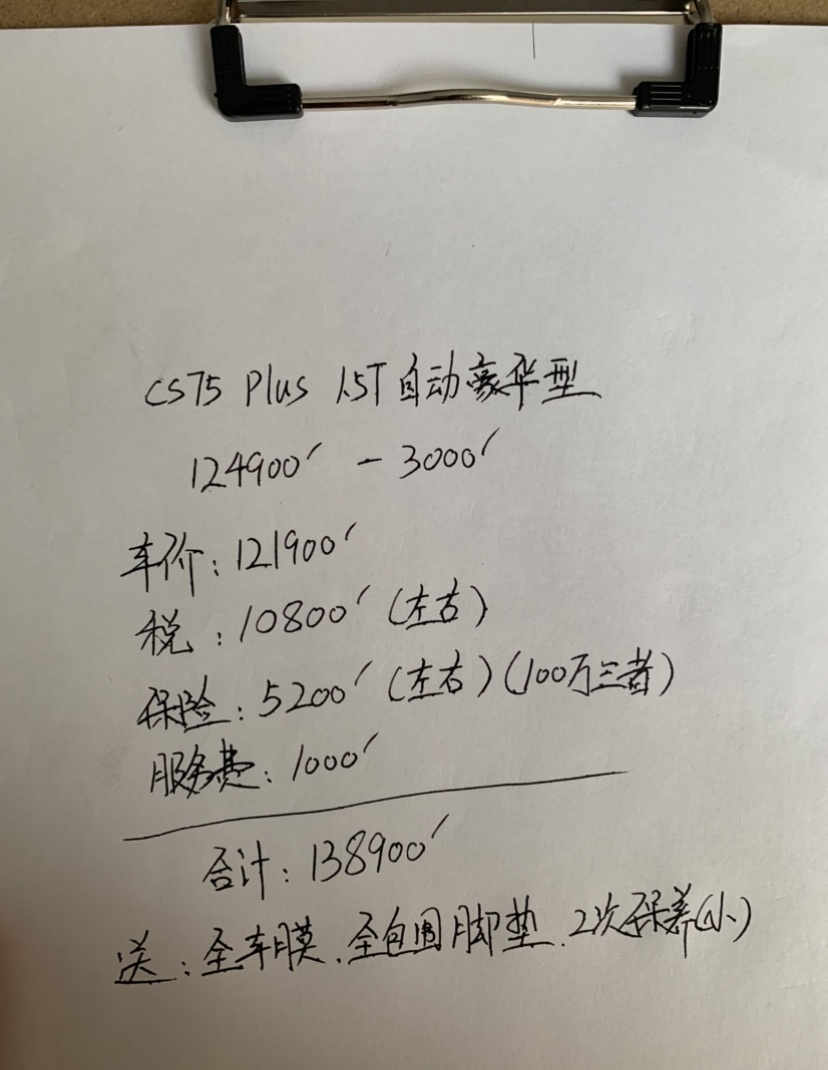 CS75 Plus 1.5T自动豪华型
124900′ - 3000′
车价：121900′
税：10800′（左右）
保险：5200′（左右）（100万三者）
服务费：1000′
合计：138900′
送：全车膜、全包围脚垫、2次保养(小)